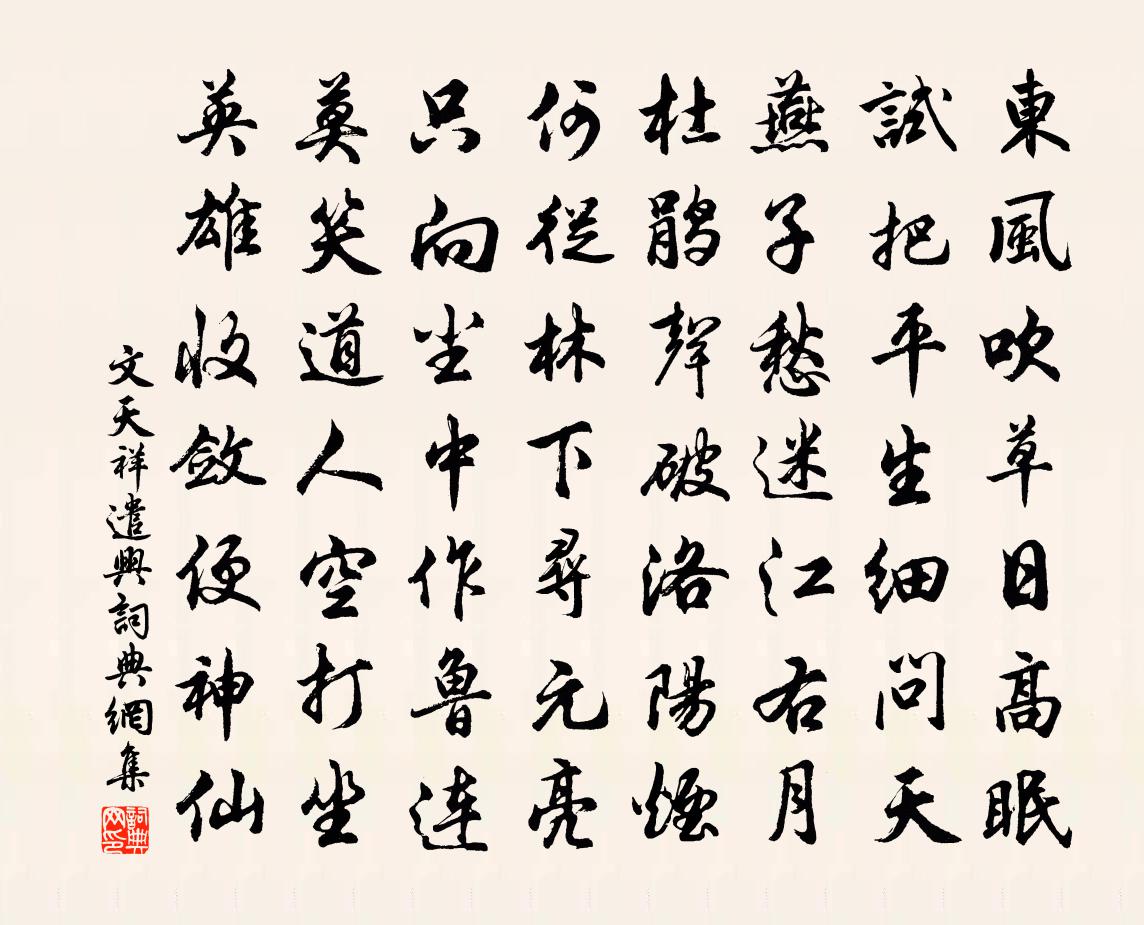 東風吹草日高眠
試把平生細問天
燕子愁迷江右月
杜鹃聲破洛陽煙
何從林下尋元亮
只向尘中作魯連
莫笑道人空打坐
英雄收斂便神仙
文天祥遣興詞典網集
詞典网印